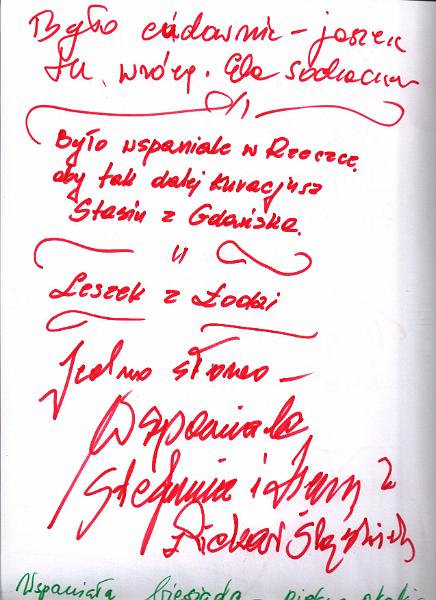 Było cudownie - jeszcze
tu wrócę. Ela Sochacka
Było wspaniale w Rzeczce,
aby tak dalej kuracjusz
Stasiu z Gdańska.
Leszek z Łodzi
Jedno słowo -
Wspaniale
Stefania i
Piekar Śląskich
Wspaniała biesiada -